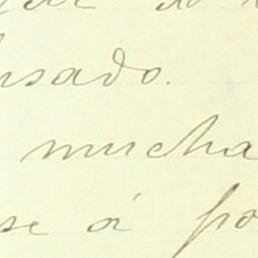 usado.
mucha
se á po